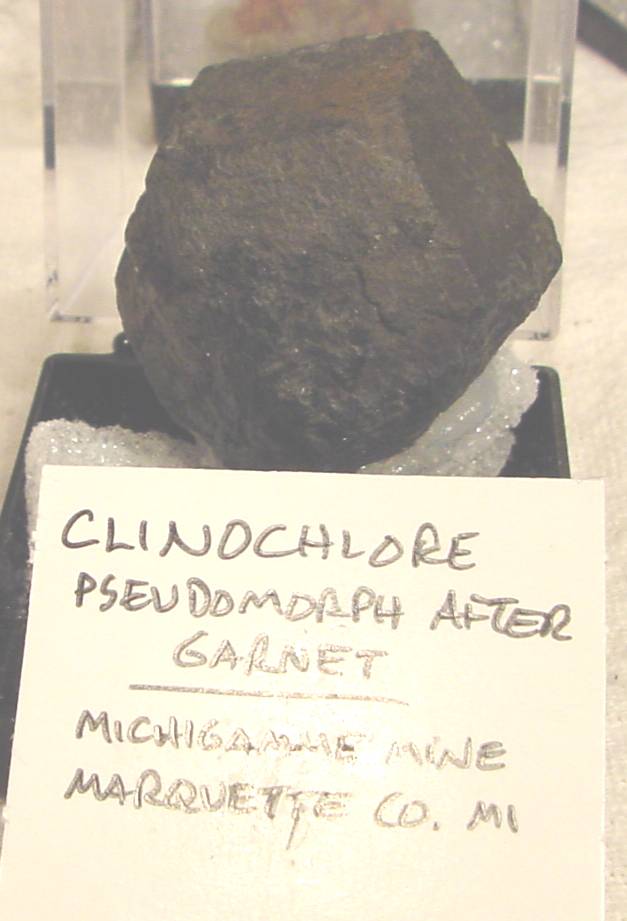 CLINOCHLORE
PSEUDOMORPH AFTER
GARNET
MICHIGAMME MINE
MARQUETTE CO. MI